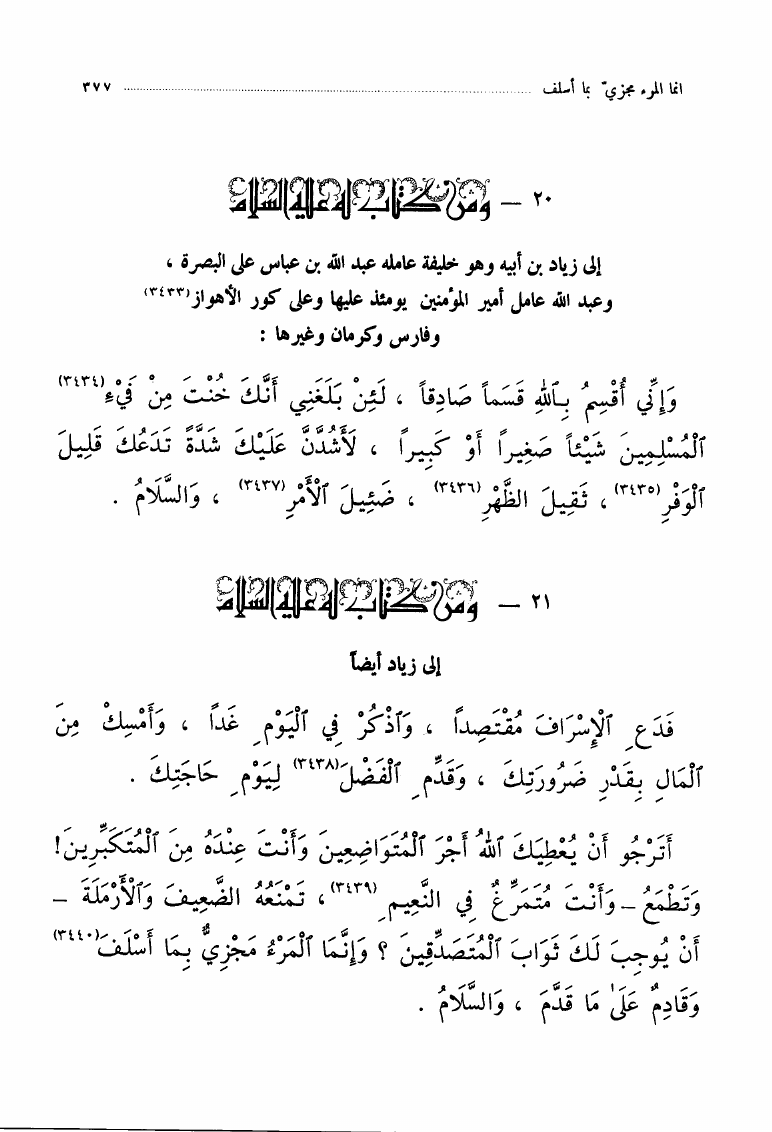 انما المرء مجزيّ بما أسلف ........ ٣٧٧
٢٠ – ومن كتاب له عليه السلام
إلى زياد بن أبيه وهو خليفة عامله عبد الله بن عباس على البصرة ،
وعبد الله عامل أمير المؤمنين يومئذ عليها وعلى كور الأهواز (٣٤٣٣)
وفارس وكرمان وغيرها :
وَإِنِّي أُقْسِمُ بِٱللهِ قَسَماً صَادِقاً ، لَئِنْ بَلَغَنِي أَنَّكَ خُنْتَ مِنْ فَيْءِ (٣٤٣٤)
ٱلْمُسْلِمِينَ شَيْئاً صَغِيراً أَوْ كَبِيراً ، لَأَشُدَّنَّ عَلَيْكَ شَدَّةً تَدَعُكَ قَلِيلَ
ٱلْوَفْرِ (٣٤٣٥) ، ثَقِيلَ الظَّهْرِ (٣٤٣٦) ، ضَئِيلَ ٱلْأَمْرِ (٣٤٣٧) ، وَالسَّلَامُ .
٢١ – ومن كتاب له عليه السلام
إلى زياد أيضاً
فَدَعِ ٱلْإِسْرَافَ مُقْتَصِداً ، وَٱذْكُرْ فِي ٱلْيَوْمِ غَداً ، وَأَمْسِكْ مِنَ
ٱلْمَالِ بِقَدْرِ ضَرُورَتِكَ ، وَقَدِّمِ ٱلْفَضْلَ (٣٤٣٨) لِيَوْمِ حَاجَتِكَ .
أَتَرْجُو أَنْ يُعْطِيَكَ ٱللهُ أَجْرَ ٱلْمُتَوَاضِعِينَ وَأَنْتَ عِنْدَهُ مِنَ ٱلْمُتَكَبِّرِينَ!
وَتَطْمَعُ – وَأَنْتَ مُتَمَرِّغٌ فِي النَّعِيمِ (٣٤٣٩) ، تَمْنَعُهُ الضَّعِيفَ وَٱلْأَرْمَلَةَ –
أَنْ يُوجِبَ لَكَ ثَوَابَ ٱلْمُتَصَدِّقِينَ ؟ وَإِنَّمَا ٱلْمَرْءُ مَجْزِيٌّ بِمَا أَسْلَفَ (٣٤٤٠)
وَقَادِمٌ عَلَىٰ مَا قَدَّمَ ، وَالسَّلَامُ .